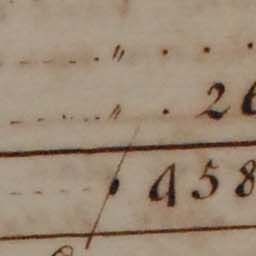 ....." . . .
....." . 26
.... 958